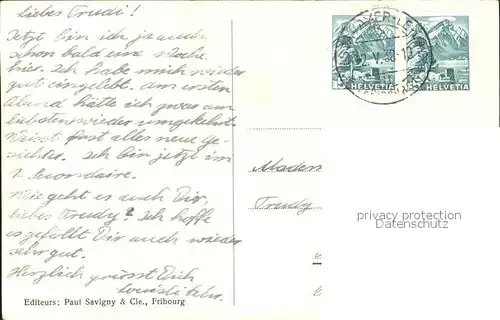 liebes Trudi!
Jetzt bin ich ja auch
schon bald eine Woche
hier. Ich habe mich wieder
gut eingelebt. Am ersten
Abend hätte ich zwar am
liebsten wieder umgekehrt.
Weisst fast alles neue Ge-
sichter. Ich bin jetzt im
Secondaire.
Wie geht es auch Dir,
liebes Trudy? Ich hoffe
es gefällt Dir auch wieder
sehr gut.
Herzlich grüsst Dich
Editeurs: Paul Savigny & Cie., Fribourg
HELVETIA HELVETIA
Madem
Trudy
privacy protection
watermark